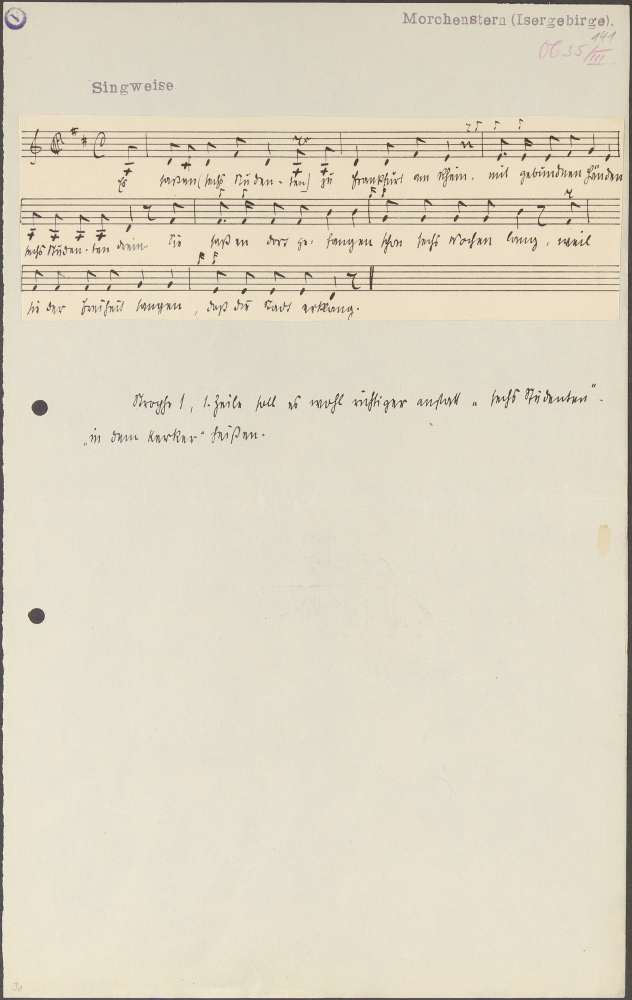 Morchenstern (Isergebirge).
141
0635/III
Singweise
Es saßen (sechs Studen-ten) zu Frankfurt am Rhein. mit gebundnen Händen
sechs Studen-ten drein Sie saßen dort ge-fangen schon sechs Wochen lang, weil
sie der Freiheit sangen, daß die Stadt erklang.
Strophe 1, 1. Zeile soll es wohl richtiger anstatt "sechs Studenten"
"in dem Kerker" heißen.